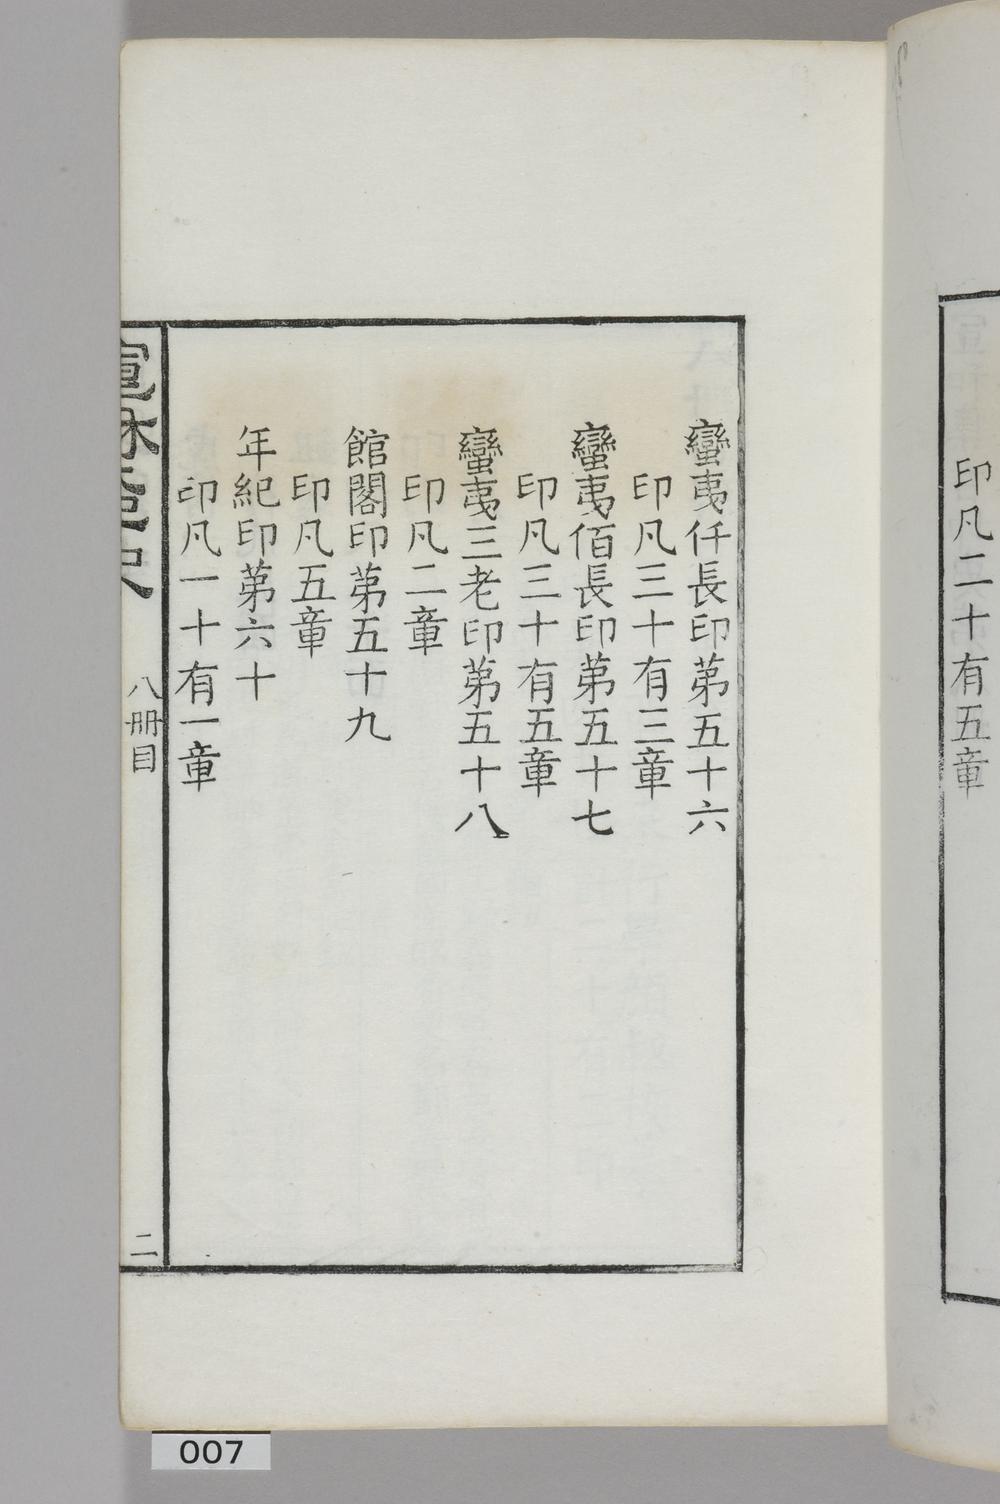 印凡二十有五章
蠻夷仟長印第五十六
印凡三十有三章
蠻夷佰長印第五十七
印凡三十有五章
蠻夷三老印第五十八
印凡二章
館閣印第五十九
印凡五章
年紀印第六十
印凡一十有一章
宣和集古印史
八冊目
二
007